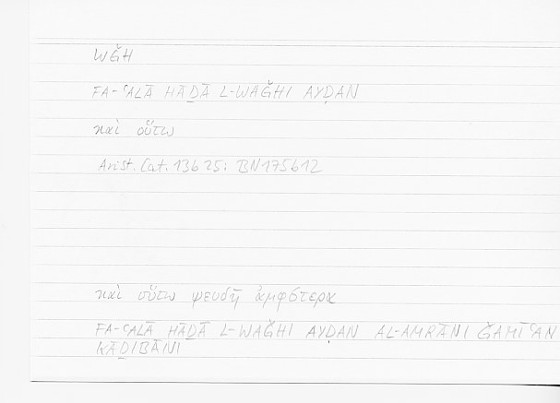 WǦH
FA-ʿALĀ HĀḎĀ L-WAǦHI AYḌAN
καὶ οὕτω
Arist. Cat. 13b25; BN175b12
καὶ οὕτω ψευδῆ ἀμφότερα
FA-ʿALĀ HĀḎĀ L-WAǦHI AYḌAN AL-AMRĀNI ǦAMĪʿAN
KĀḎIBĀNI